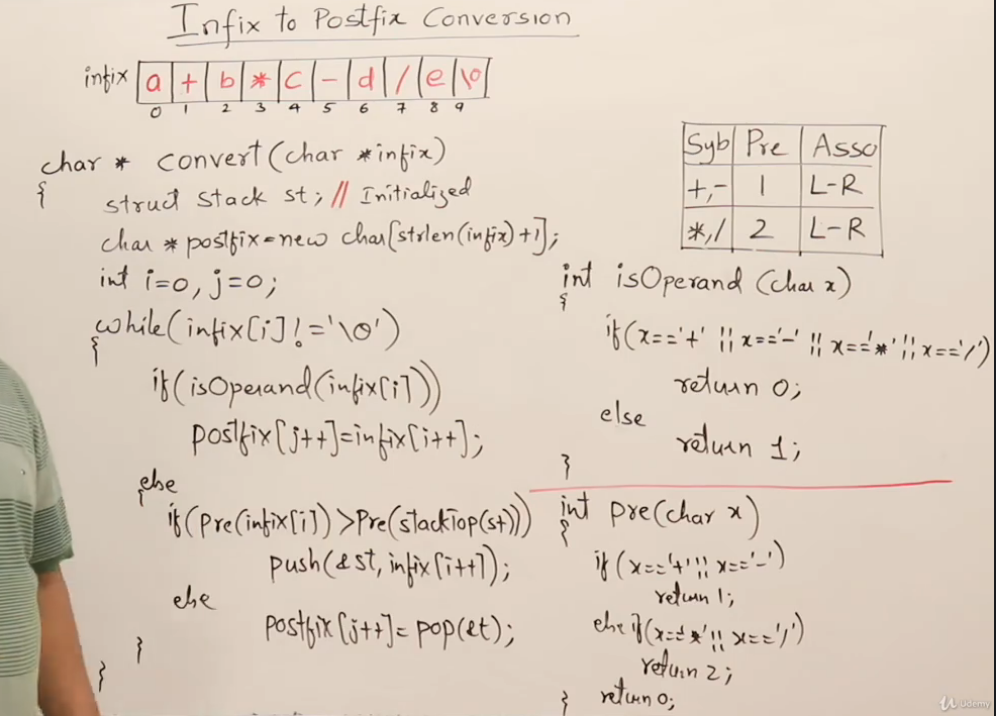 Infix to Postfix Conversion
infix a + b * c - d / e \0
0 1 2 3 4 5 6 7 8 9
char * convert(char *infix)
{
struct stack st; // Initialized
char * postfix=new char[strlen(infix)+1];
int i=0, j=0;
while(infix[i]!='\0')
{
if(isOperand(infix[i]))
postfix[j++]=infix[i++];
else
{
if(pre(infix[i])>pre(stackTop(st)))
push(&st, infix[i++]);
else
postfix[j++]= pop(&t);
}
}
Syb Pre Asso
+,- 1 L-R
*,/ 2 L-R
int isOperand (char x)
{
if(x=='+' || x=='-' || x=='*' || x=='/')
return 0;
else
return 1;
}
int pre(char x)
{
if(x=='+' || x=='-')
return 1;
else if(x=='*' || x=='/')
return 2;
return 0;
}
Udemy